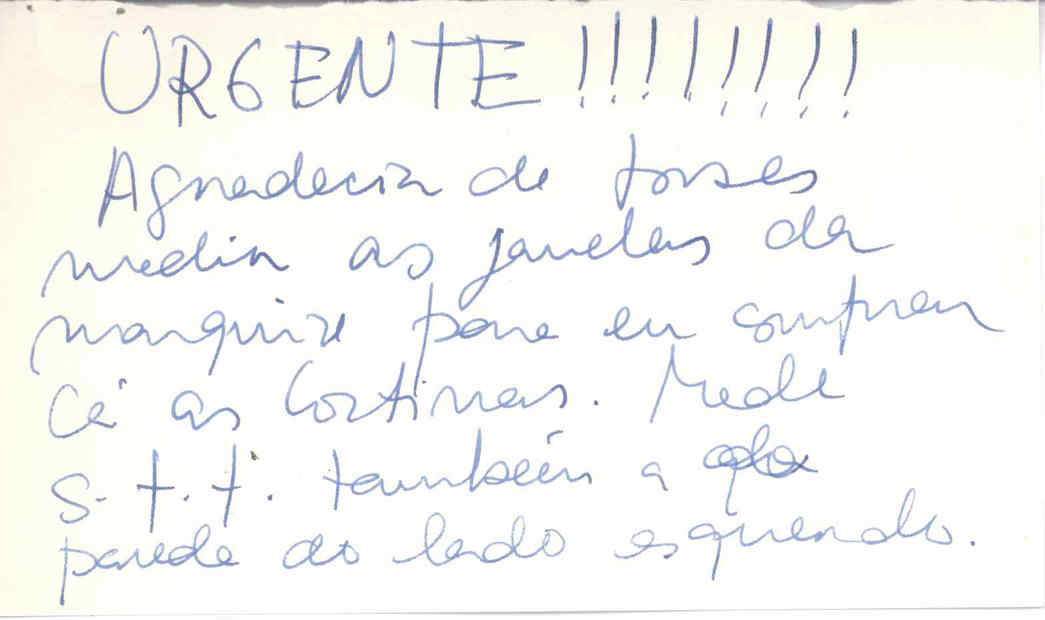 URGENTE !!!!!!!!
Agradecia de fosses
medir as janelas da
marquize para eu comprar
cá as Cortinas. Mede
S.f.f. também a
parede do lado esquerdo.